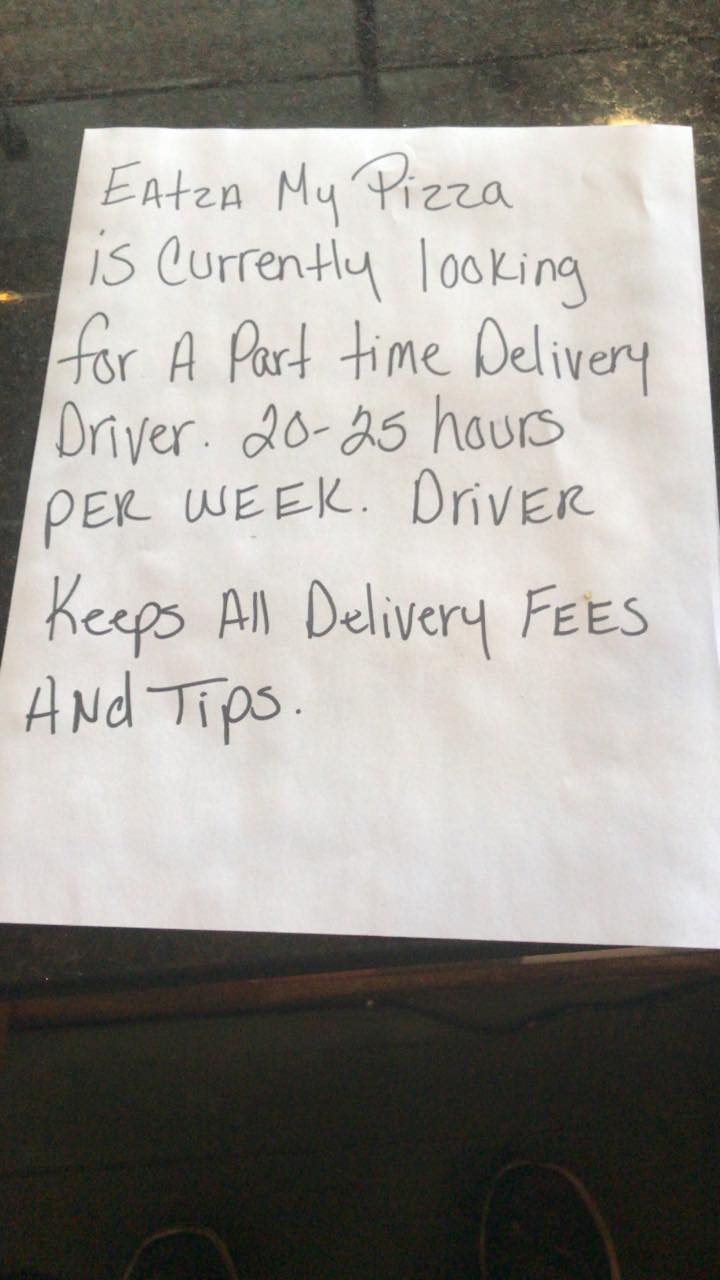 EAtzA My Pizza
is Currently looking
for A Part time Delivery
Driver. 20-25 hours
PER WEEK. DriVER
Keeps All Delivery FEES
ANd Tips.